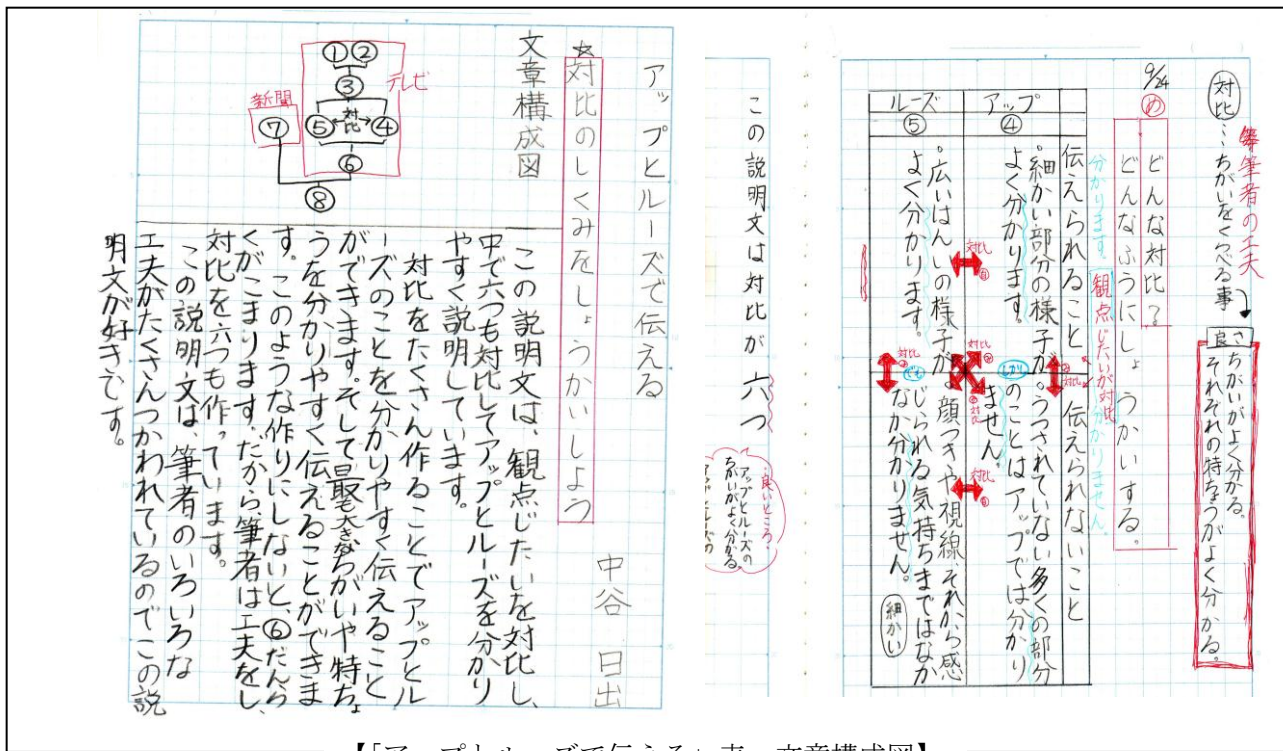 筆者の工夫
対比…ちがいをくらべる事
良さ
ちがいがよく分かる。
それぞれの特ちょうがよく分かる。
9/24
め
どんな対比?
どんなふうにしょうかいする。
観点じたいが対比
分かります。
分かりません。
伝えられること
伝えられないこと
アップ
④
・細かい部分の様子が
よく分かります。
・うつされていない多くの部分
のことはアップでは分かり
ません。
しかし
ルーズ
⑤
・広いはんいの様子が
よく分かります。
・顔つきや視線、それから感
じられる気持ちまではなか
なか分かりません。
でも
細かい
対比
対比
対比
対比
この説明文は対比が六つ
良いところ
アップとルーズの
ちがいがよく分かる。
アップとルーズで伝える
中谷 日出
☆対比のしくみをしょうかいしよう
文章構成図
テレビ
①②
③
⑤対比④
⑥
新聞
⑦
⑧
この説明文は、観点じたいを対比し、
中で六つも対比してアップとルーズを分かり
やすく説明しています。
対比をたくさん作ることでアップとル
ーズのことを分かりやすく伝えること
ができます。そして最も大きなちがいや特ちょ
うを分かりやすく伝えることができま
す。このような作りにしないと、⑥だんら
くがこまります。だから筆者は工夫をし、
対比を六つも作っています。
この説明文は、筆者のいろいろな
工夫がたくさんつかわれているのでこの説
明文が好きです。
【「アップとルーズで伝える」表 文章構成図】